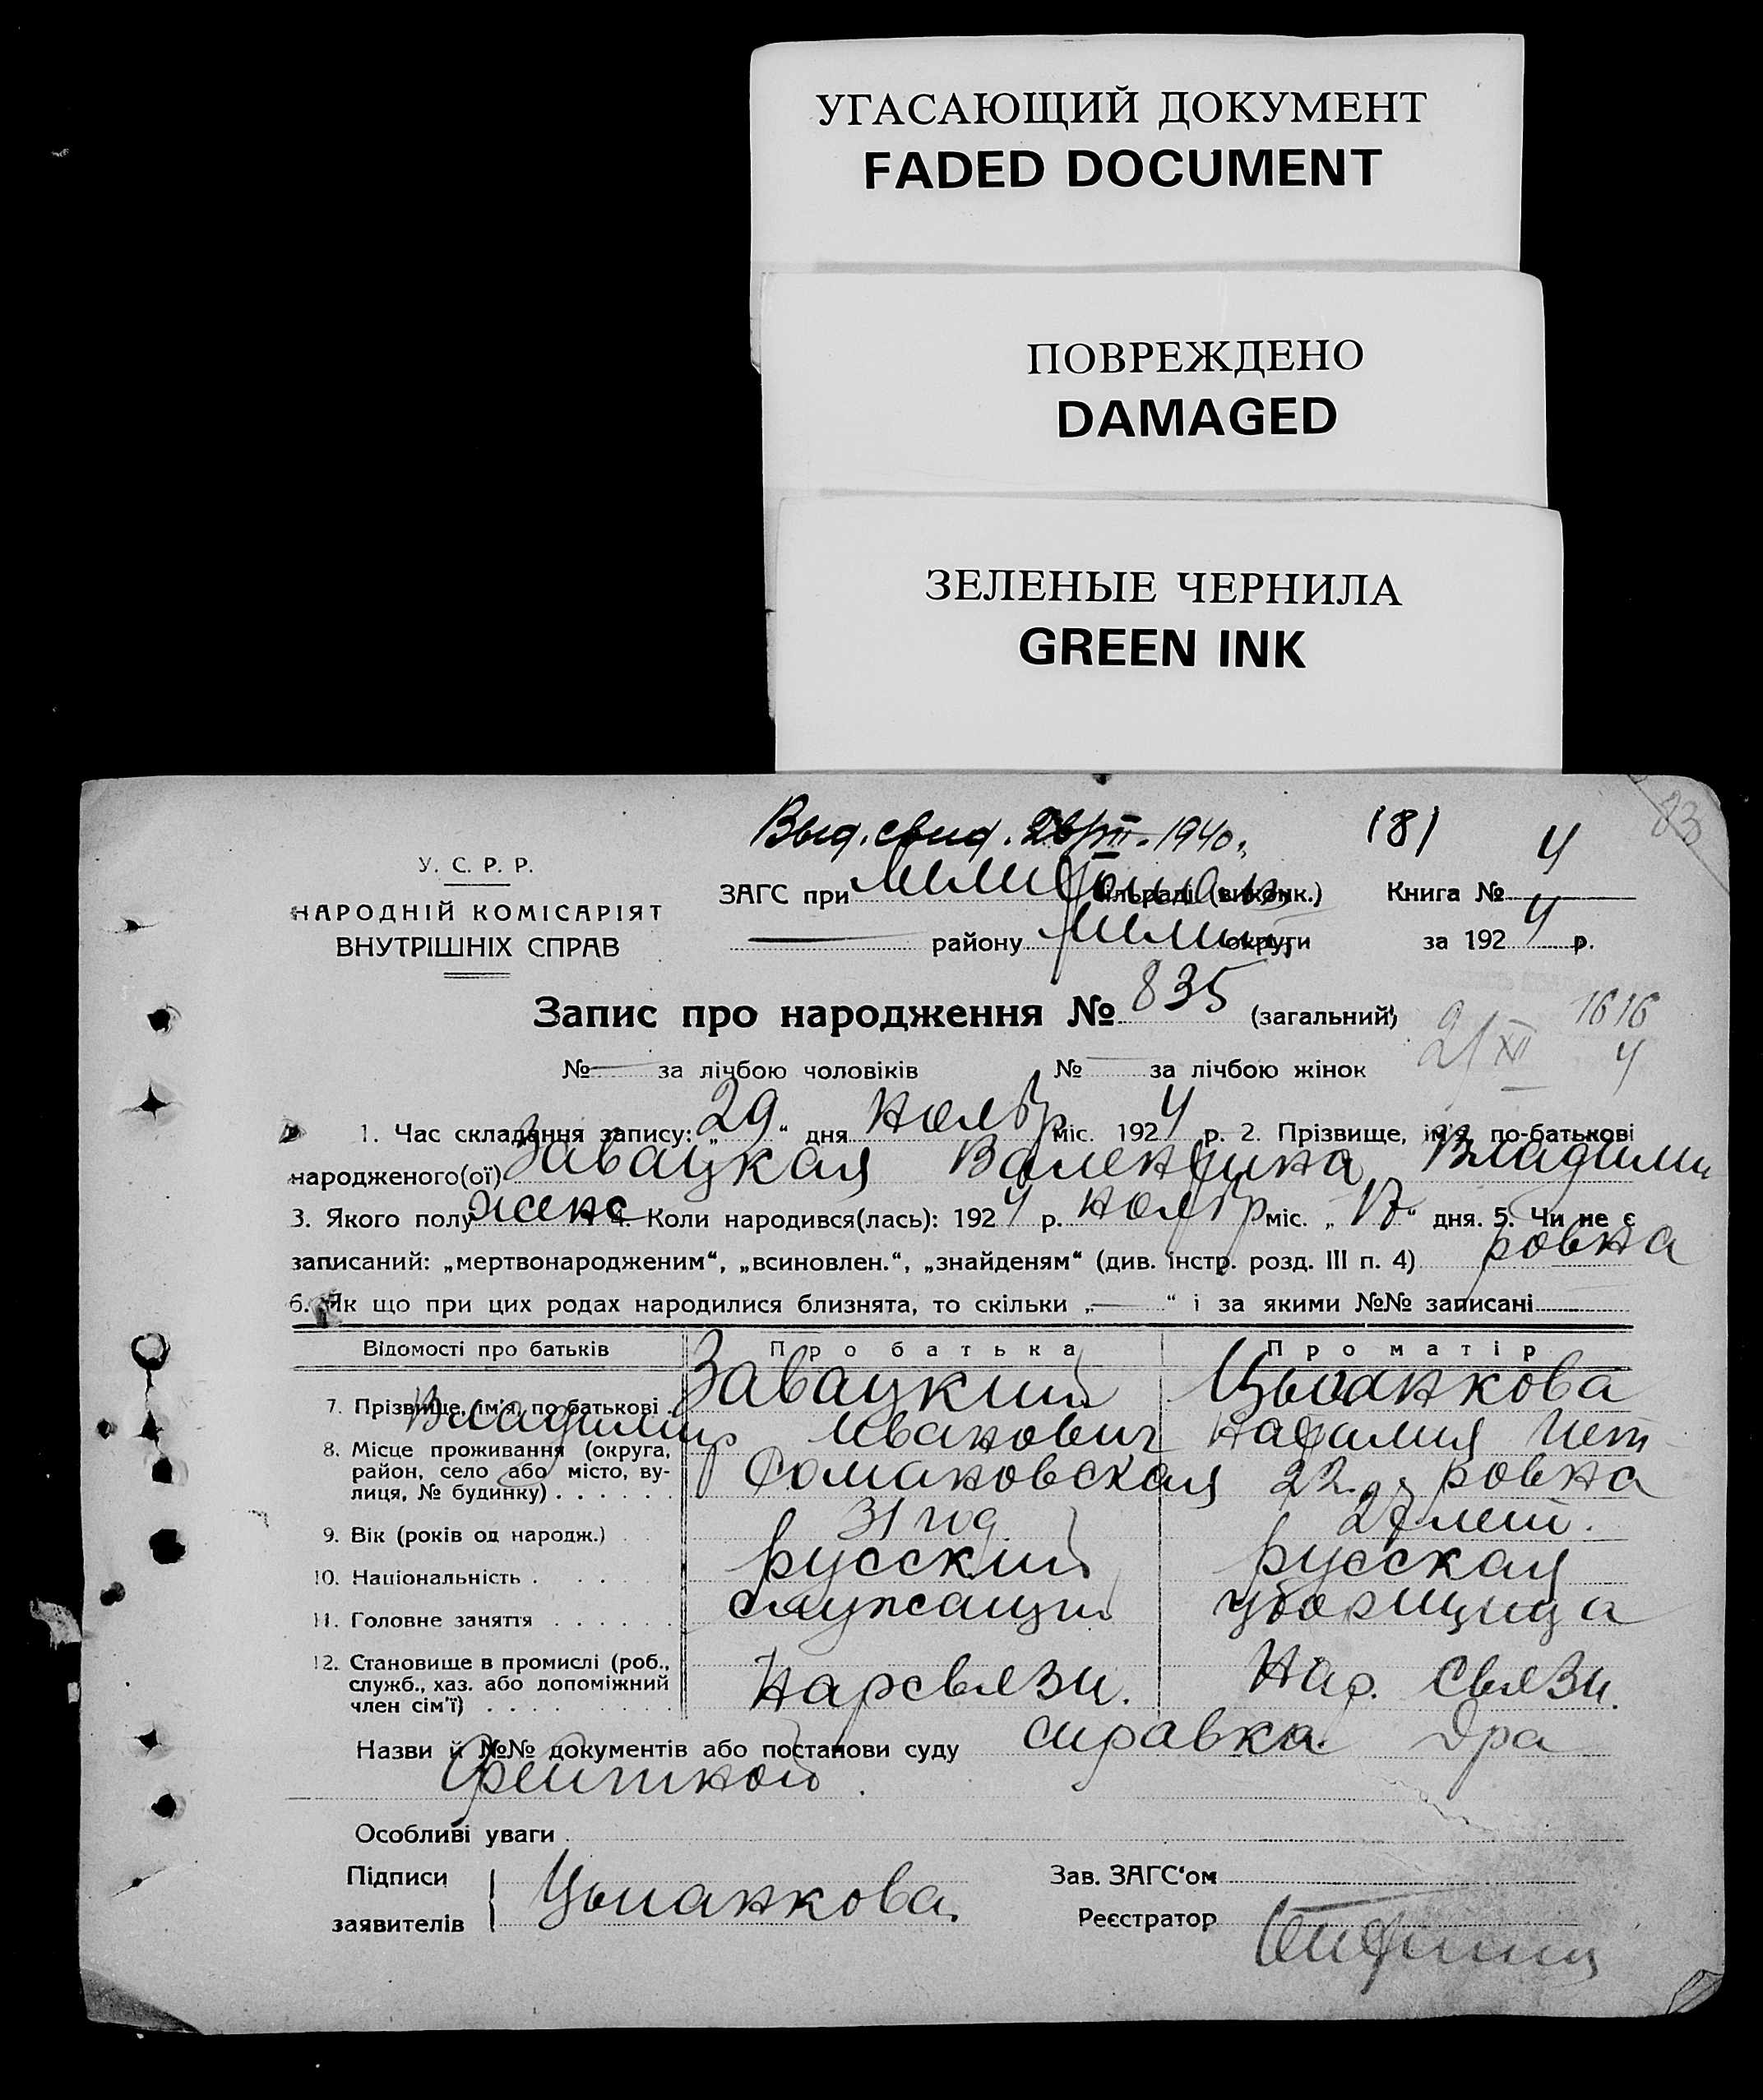 УГАСАЮЩИЙ ДОКУМЕНТ
FADED DOCUMENT
ПОВРЕЖДЕНО
DAMAGED
ЗЕЛЕНЫЕ ЧЕРНИЛА
GREEN INK
Выд. свид. 1940 г. 181 83
У. С. Р. Р.
НАРОДНІЙ КОМІСАРІЯТ
ВНУТРІШНІХ СПРАВ
ЗАГС при (виконк.) Книга № 4
району округи за 1924 р.
Запис про народження № 835 (загальний)
2/XII 1616 4
№ — за лічбою чоловіків № — за лічбою жінок
1. Час складання запису: „29“ дня ноябр міс. 1924 р. 2. Прізвище, ім'я, по-батькові
народженого(ої) Завацкая Валентина Владими
3. Якого полу женс 4. Коли народився(лась): 1924 р. ноябр міс. „17“ дня. 5. Чи не є
ровна
записаний: „мертвонародженим“, „всиновлен.“, „знайденям“ (див. інстр. розд. III п. 4)
6. Як що при цих родах народилися близнята, то скільки „—“ і за якими №№ записані
Відомості про батьків Про батька Про матір
7. Прізвище, ім'я, по-батькові . Завацкий Цыганкова
Владимир Иванович Наталия Пет
ровна
8. Місце проживання (округа,
район, село або місто, ву-
лиця, № будинку) . . . . . . 22
9. Вік (років од народж.) 31 год лет.
10. Національність . русский русская
11. Головне заняття . . . . . . служащий уборщица
12. Становище в промислі (роб.,
служб., хаз. або допоміжний
член сім'ї) . . . . . . . . . Нарсвязи. Нар. Связи.
Назви й №№ документів або постанови суду справка Дра
Особливі уваги
Підписи
заявителів Цыганкова
Зав. ЗАГС'ом
Реєстратор